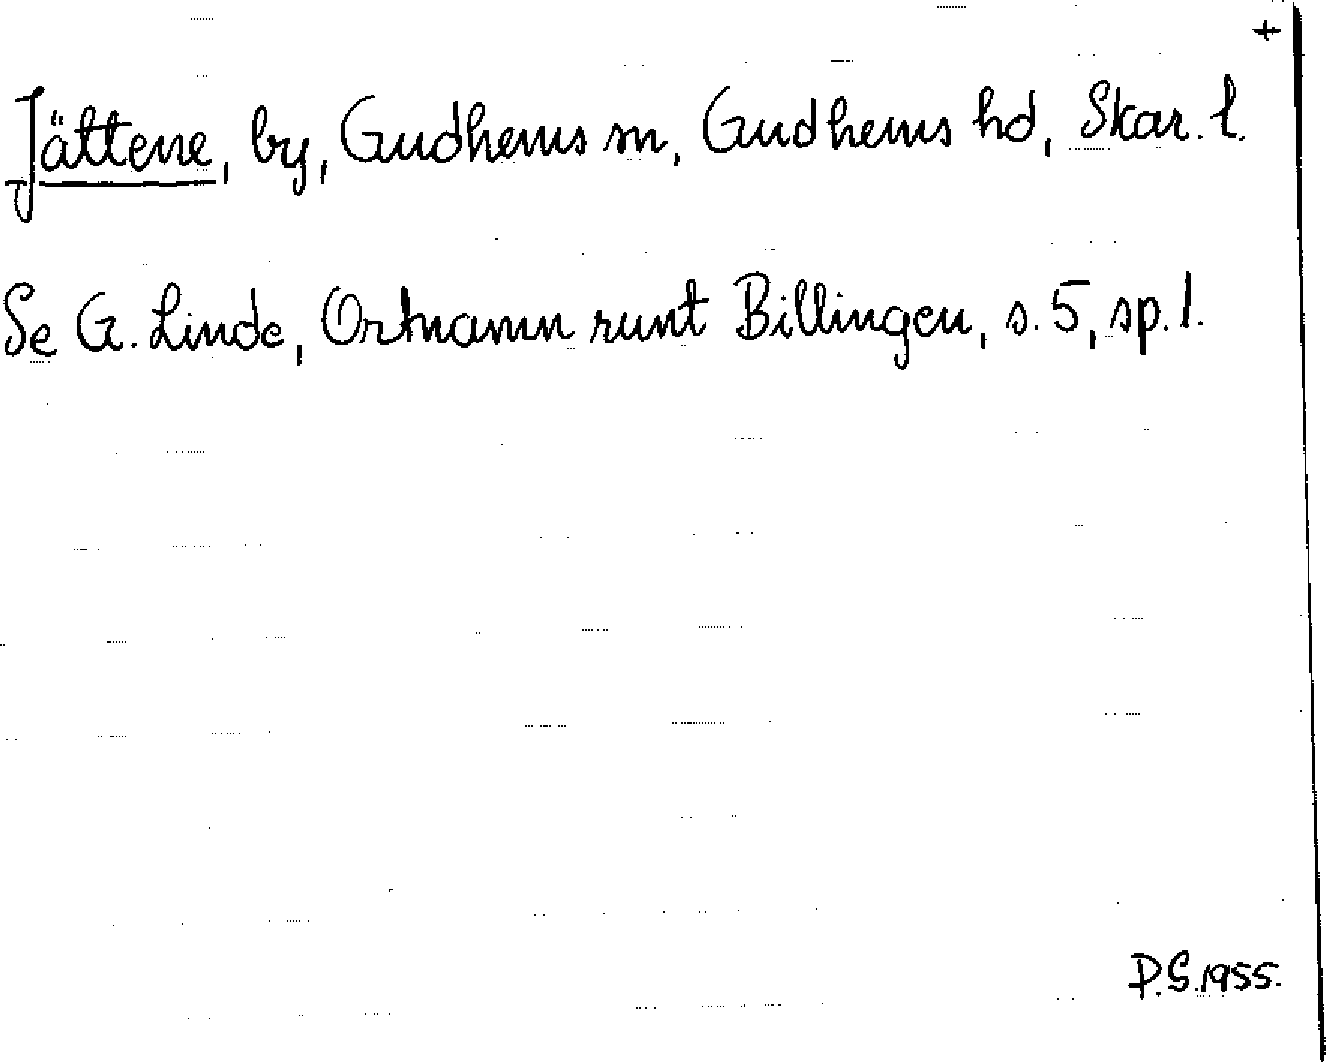 +
Jättene, by, Gudhems sn, Gudhems hd, Skar. l.
Se G. Linde, Ortnamn runt Billingen, s. 5, sp. 1.
P.S. 1955.